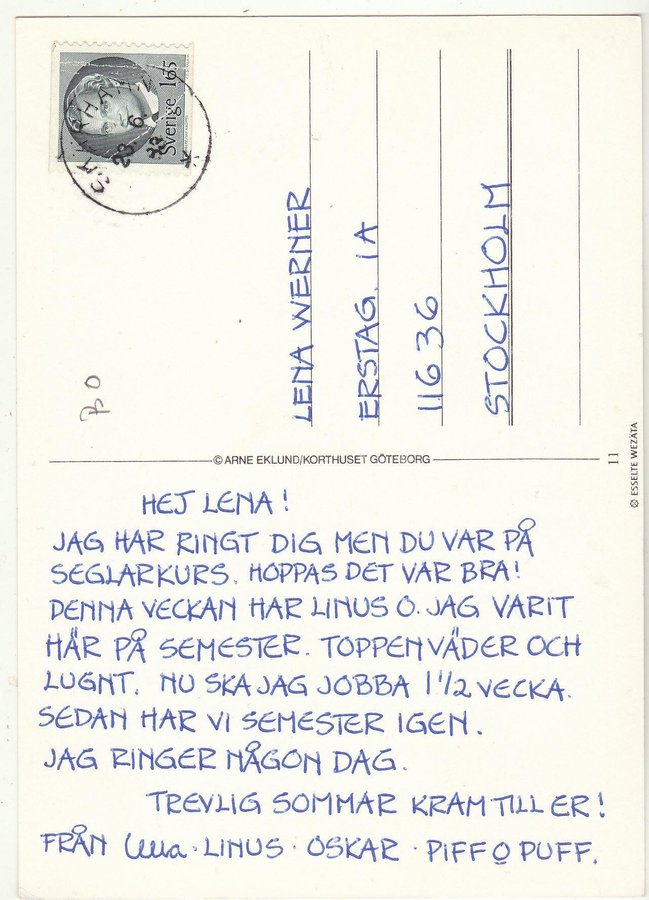 Sverige 165
23. 6.
LENA WERNER
ERSTAG. 1A
116 36
STOCKHOLM
© ARNE EKLUND/KORTHUSET GÖTEBORG
11
© ESSELTE WEZÄTA
HEJ LENA!
JAG HAR RINGT DIG MEN DU VAR PÅ
SEGLARKURS. HOPPAS DET VAR BRA!
DENNA VECKAN HAR LINUS O. JAG VARIT
HÄR PÅ SEMESTER. TOPPENVÄDER OCH
LUGNT. NU SKA JAG JOBBA 1 1/2 VECKA.
SEDAN HAR VI SEMESTER IGEN.
JAG RINGER NÅGON DAG.
TREVLIG SOMMAR KRAM TILL ER!
FRÅN · LINUS · OSKAR · PIFF O PUFF.